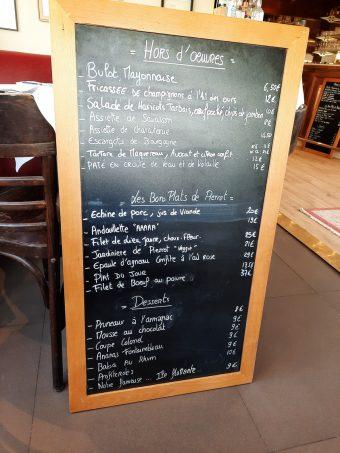 = Hors d'oeuvres =
_ Bulot Mayonnaise 6,50€
_ FRICASSÉE de champignons à l'Ail des ours 12€
_ Salade de Haricots Tarbais, oeuf poché chips de jambon 10€
_ Assiette de Saucisson 8€
_ Assiette de charcuterie
_ Escargots de Bourgogne
_ Tartare de Maquereau, Avocat et citron confit 12€
_ PATÉ EN CROUTE de veau et de Volaille 15€
= Les Bons Plats de Pierrot =
_ Echine de porc, jus de Viande 20€
_ Andouillette "AAAAA" 19€
_ Filet de lieu jaune, choux-fleur 25€
_ Jardinière de Pierrot "Veggie" 21€
_ Epaule d'agneau Confite à l'ail Rose 29€
_ Plat Du Jour
_ Filet de Boeuf au poivre 37€
= Desserts =
_ Pruneaux à l'armagnac 8€
_ Mousse au chocolat 9€
_ Coupe Colonel 9€
_ Ananas 9€
_ Baba Au Rhum 10€
_ Profiteroles 9€
_ Notre Fameuse ... Ile flottante ... 9€